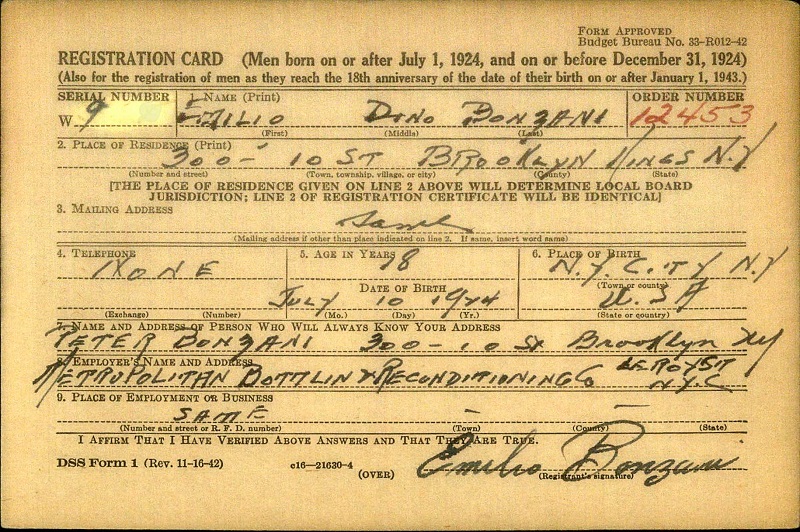 FORM APPROVED
Budget Bureau No. 33-R012-42
REGISTRATION CARD (Men born on or after July 1, 1924, and on or before December 31, 1924)
(Also for the registration of men as they reach the 18th anniversary of the date of their birth on or after January 1, 1943.)
SERIAL NUMBER 1. NAME (Print) ORDER NUMBER
W 9 EMILIO DINO BONZANI 12453
(First) (Middle) (Last)
2. PLACE OF RESIDENCE (Print)
300 - 10 ST BROOKLYN KINGS N.Y
(Number and street) (Town, township, village, or city) (County) (State)
[THE PLACE OF RESIDENCE GIVEN ON LINE 2 ABOVE WILL DETERMINE LOCAL BOARD
JURISDICTION; LINE 2 OF REGISTRATION CERTIFICATE WILL BE IDENTICAL]
3. MAILING ADDRESS
Same
(Mailing address if other than place indicated on line 2. If same, insert word same)
4. TELEPHONE 5. AGE IN YEARS 6. PLACE OF BIRTH
NONE 18 N.Y. CITY N.Y
(Town or county)
DATE OF BIRTH
JULY 10 1924 U.S.A
(Exchange) (Number) (Mo.) (Day) (Yr.) (State or country)
7. NAME AND ADDRESS OF PERSON WHO WILL ALWAYS KNOW YOUR ADDRESS
PETER BONZANI 300 - 10 St Brooklyn NY
8. EMPLOYER'S NAME AND ADDRESS
METROPOLITAN BOTTLING & RECONDITIONING Co LEROY ST
N.Y.C
9. PLACE OF EMPLOYMENT OR BUSINESS
SAME - -
(Number and street or R. F. D. number) (Town) (County) (State)
I AFFIRM THAT I HAVE VERIFIED ABOVE ANSWERS AND THAT THEY ARE TRUE.
DSS Form 1 (Rev. 11-16-42) c16-21630-4 (OVER) Emilio Bonzani
(Registrant's signature)